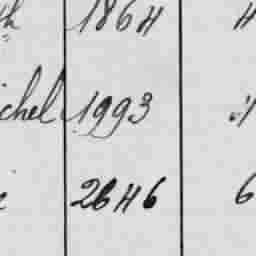 th 1864 4
chel 1993 4
2646 6